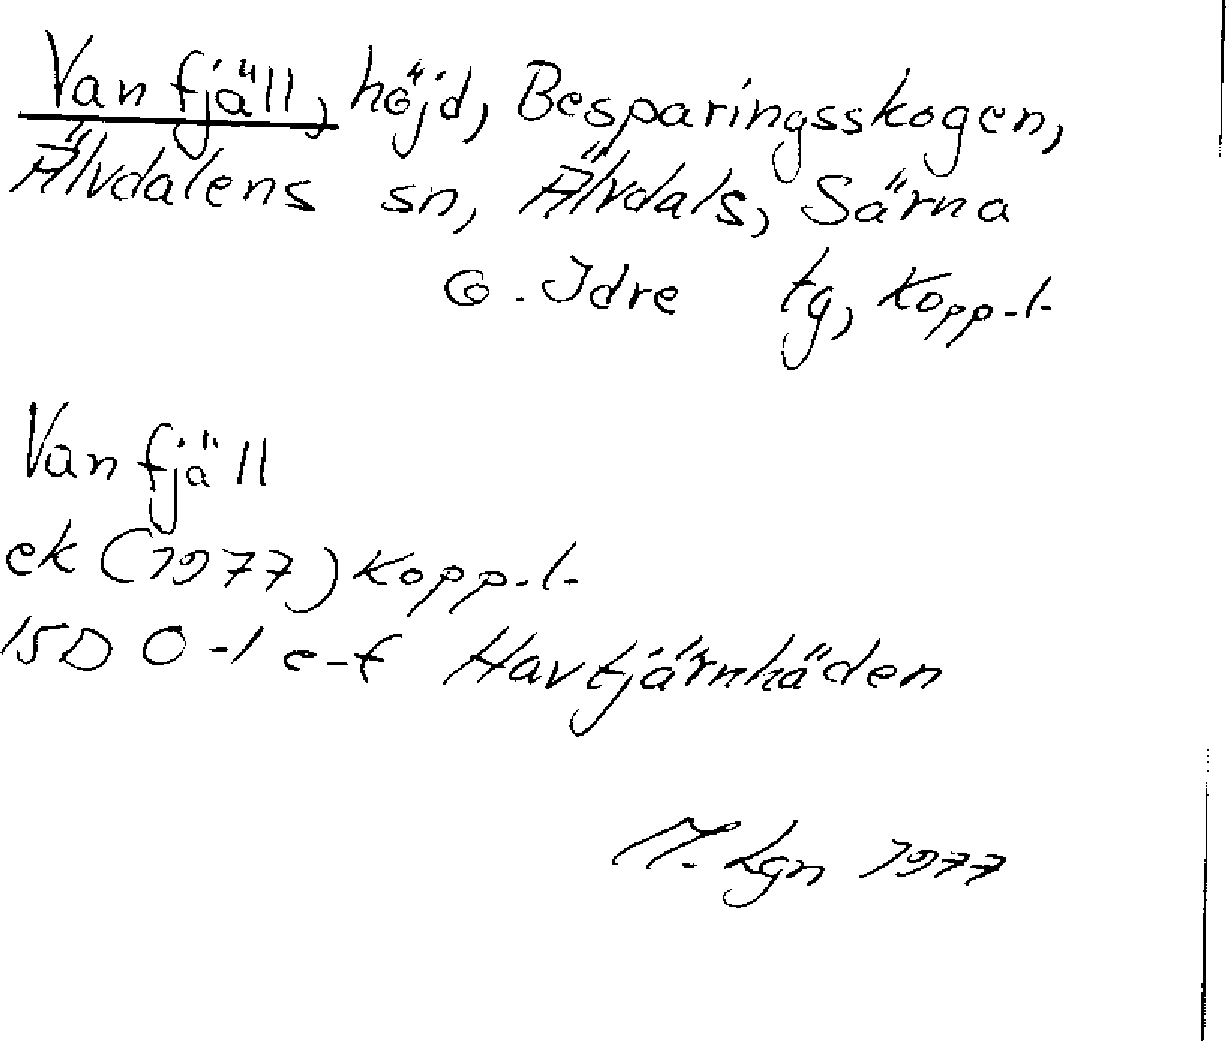 Vanfjäll, höjd, Besparingsskogen,
Älvdalens sn, Älvdals, Särna
o. Idre tg, Kopp-l-
Vanfjäll
ek (1977) Kopp-l-
15D 0-1 e-f Havtjärnhäden
M. Lgn 1977